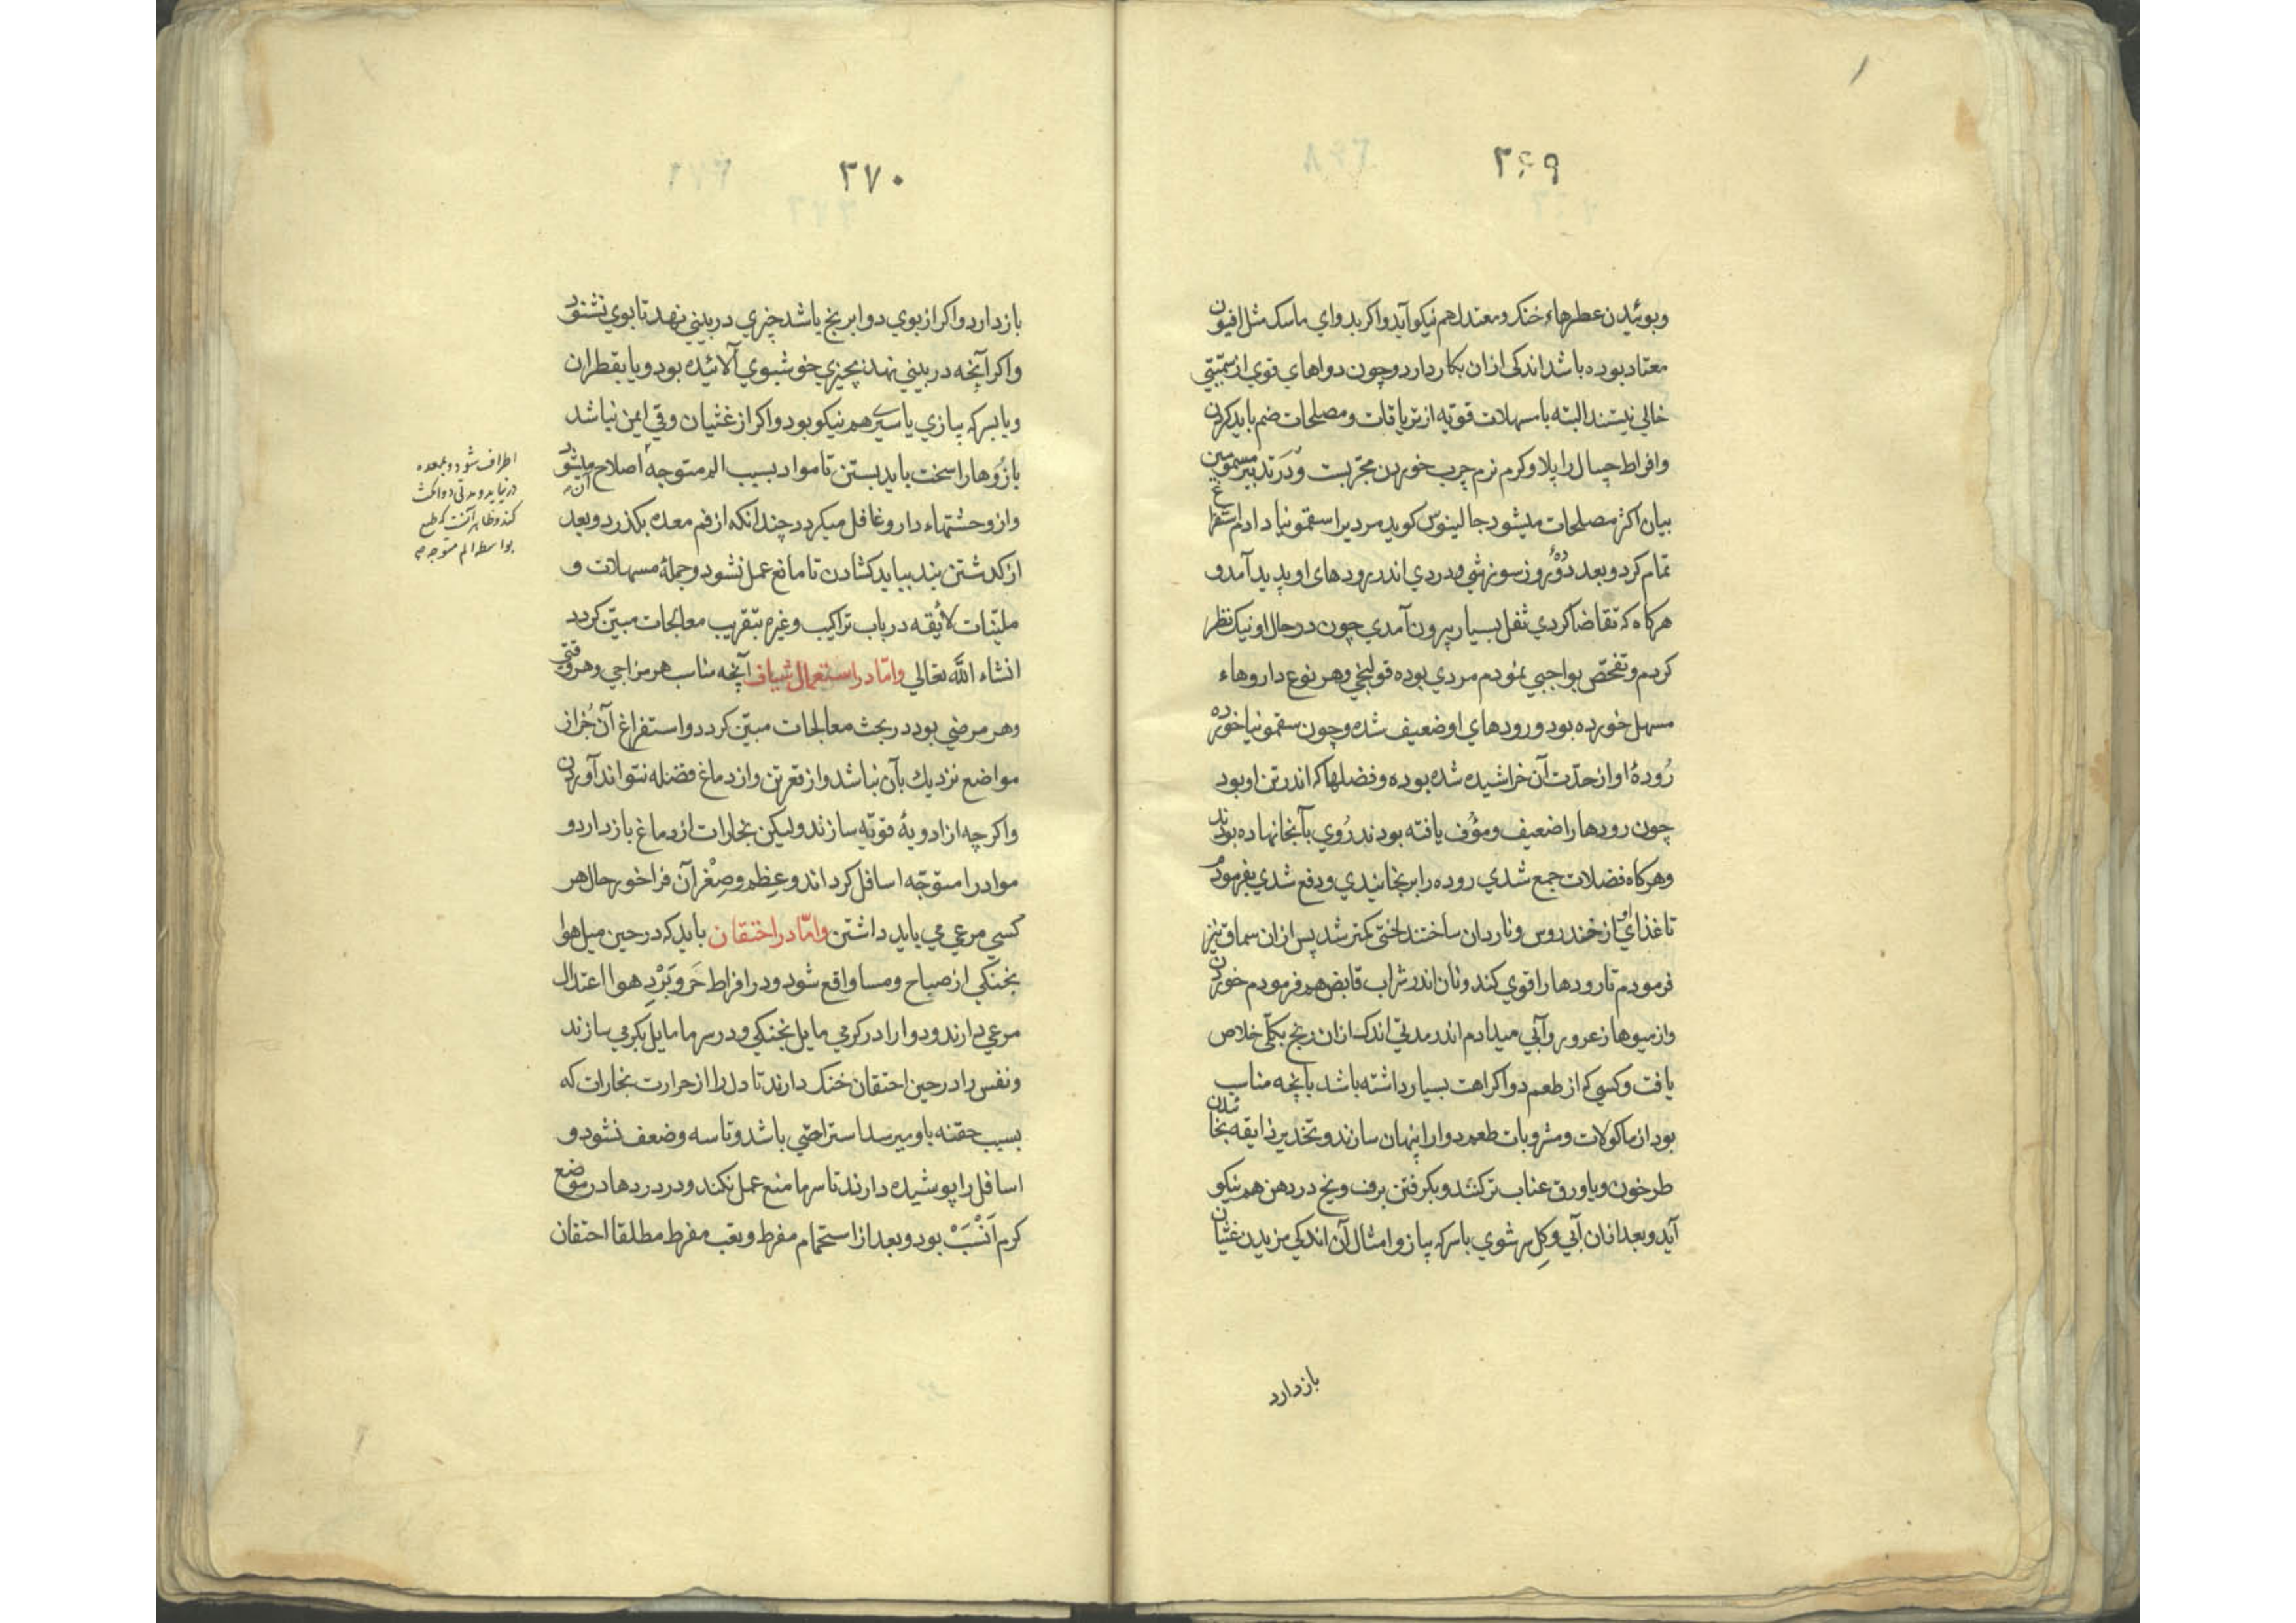 ۳۶۹
وبوئیدن عطرهاء خنک ومعتدل هم نیکو آید واکر بدواي ماسک مثل افیون
معتاد بوده باشد اندکی ازان بکار دارد وچون دواهاي قوي از سمیّتي
خالي نیستند البته با مسهلات قویّه از تریاقات ومصلحات ضم باید کردن
وافراط چسال را پلاو کرم نرم چرب خوردن مجرّبست ودر تدبیر مسمومین
بیان اکثر مصلحات میشود جالینوس کوید مردیرا سقمونیا دادم استفراغ
تمام کرد وبعد دوٗ روز سوزشي ودردي اندر رودهاي او پدید آمد و
هرکاه که تقاضا کردي ثفل بسیار بیرون آمدي چون در حال او نیک نظر
کردم وتفحّص بواجبي نمودم مردي بوده قولنجي وهر نوع داروهاء
مسهل خورده بود ورودهاي او ضعیف شده وچون سقمونیا خورده
رُودهٔ او از حدّت آن خراشیده شده بوده وفضلها که اندر تن او بود
چون رودها را ضعیف ومؤف یافته بودند رُوي بآنجا نهاده بودند
وهرکاه فضلات جمع شدي روده را برنجانیدي ودفع شدي بفرمودم
تا غذاي او از خندروس وناردان ساختند لختی کمتر شد پس ازان سماق نیز
فرمودم تا رودها را قوي کند ونان اندر شراب قابض هم فرمودم خوردن
واز میوها زعرور وآبي میدادم اندر مدتي اندک ازان رنج بکلّی خلاص
یافت وکسي که از طعم دوا کراهت بسیار داشته باشد بآنچه مناسب
بود از ماکولات ومشروبات طعم دوا را پنهان سازند وتخدیر ذایقه بخائیدن
طرخون ویا ورق عناب تر کنند وبکرفتن برف ویخ در دهن هم نیکو
آید وبعد ازان آبي وکِل سرشوي با سرکه پیاز وامثال آن اندکي مزیدن غثیان
بازدارد
۳۷۰
بازدارد واکر از بوي دوا برنج باشد چیزي در بیني نهد تا بوي نشنود
واکر آنچه در بیني نهند بچیزي خوشبوي آلائیده بود ویا بقطران
ویا بسرکه پیازي یا سیرے هم نیکو بود واکر از غثیان وقي ایمن نباشد
بازُوها را سخت باید بستن تا مواد بسبب الم متوجه اصلاح آن میشود
واز وحشتهاء دارو غافل میکردد چندانکه از فم معده بکذرد وبعد
از کدشتن بند بباید کشادن تا مانع عمل نشود وجملهٔ مسهلات و
ملیّنات لائقه در باب تراکیب وغیره بتقریب معالجات مبیّن کردد
انشاء اللّه تعالي وامّا در استعمال شیاف آنچه مناسب هر مزاجي وهر وقتي
وهر مرضي بود در بحث معالجات مبیّن کردد واستفراغ آن جُز از
مواضع نزدیك بآن نباشد واز قعر تن واز دماغ فضله نتواند آوردن
واکرچه از ادویهٔ قویّه سازند ولیکن بخارات از دماغ بازدارد و
مواد را متوجّه اسافل کرداند وعِظم وصِغْر آن فراخور حال هر
کسي مرعي مي باید داشتن وامّا در احتقان باید که در حین میل هوا
بخنکي از صباح ومسا واقع شود ودر افراط حَر وبَرْدِ هوا اعتدال
مرعي دارند ودوا را در کرمي مایل بخنکي ودر سرما مایل بکرمي سازند
ونفس را در حین احتقان خنک دارند تا دل را از حرارت بخارات که
بسبب حقنه باو میرسد استراحتي باشد وتاسه وضعف نشود و
اسافل را پوشیده دارند تا سرما منع عمل نکند ودر دردها در موضع
کرم اَنْسَبْ بود وبعد از استحمام مفرط وتعب مفرط مطلقا احتقان
اطراف شود وبمعده
در نیاید ومدتی دوا مکث
کند وظاهر آنست که طبع
بواسطه الم متوجه